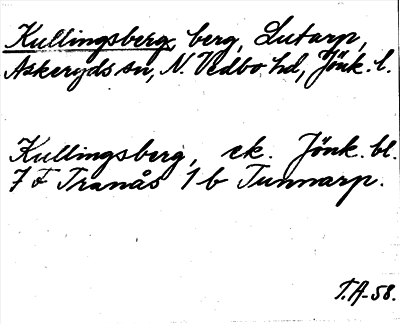 Kullingsberg, berg, Lutarp,
Askeryds sn, N. Vedbo hd, Jönk. l.
Kullingsberg, ek. Jönk. bl.
7 F Tranås 1 b Tunnarp.
T.A-58.